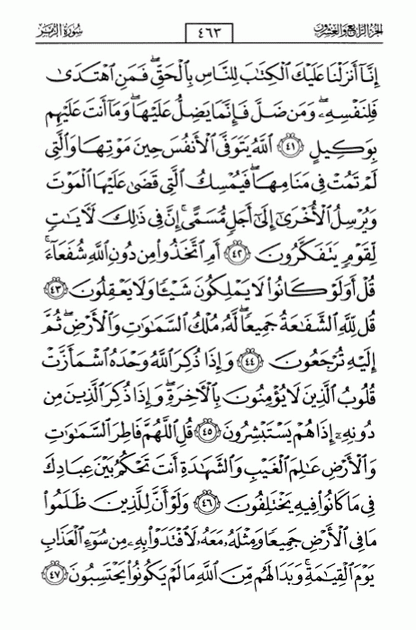 الجزء الرابع والعشرون ٤٦٣ سورة الزمر
إِنَّآ أَنزَلۡنَا عَلَيۡكَ ٱلۡكِتَٰبَ لِلنَّاسِ بِٱلۡحَقِّۖ فَمَنِ ٱهۡتَدَىٰ
فَلِنَفۡسِهِۦۖ وَمَن ضَلَّ فَإِنَّمَا يَضِلُّ عَلَيۡهَاۖ وَمَآ أَنتَ عَلَيۡهِم
بِوَكِيلٍ ٤١ ٱللَّهُ يَتَوَفَّى ٱلۡأَنفُسَ حِينَ مَوۡتِهَا وَٱلَّتِي
لَمۡ تَمُتۡ فِي مَنَامِهَاۖ فَيُمۡسِكُ ٱلَّتِي قَضَىٰ عَلَيۡهَا ٱلۡمَوۡتَ
وَيُرۡسِلُ ٱلۡأُخۡرَىٰٓ إِلَىٰٓ أَجَلٖ مُّسَمًّىۚ إِنَّ فِي ذَٰلِكَ لَأٓيَٰتٖ
لِّقَوۡمٖ يَتَفَكَّرُونَ ٤٢ أَمِ ٱتَّخَذُواْ مِن دُونِ ٱللَّهِ شُفَعَآءَۚ
قُلۡ أَوَلَوۡ كَانُواْ لَا يَمۡلِكُونَ شَيۡـٔٗا وَلَا يَعۡقِلُونَ ٤٣
قُل لِّلَّهِ ٱلشَّفَٰعَةُ جَمِيعٗاۖ لَّهُۥ مُلۡكُ ٱلسَّمَٰوَٰتِ وَٱلۡأَرۡضِۖ ثُمَّ
إِلَيۡهِ تُرۡجَعُونَ ٤٤ وَإِذَا ذُكِرَ ٱللَّهُ وَحۡدَهُ ٱشۡمَأَزَّتۡ
قُلُوبُ ٱلَّذِينَ لَا يُؤۡمِنُونَ بِٱلۡأٓخِرَةِۖ وَإِذَا ذُكِرَ ٱلَّذِينَ مِن
دُونِهِۦٓ إِذَا هُمۡ يَسۡتَبۡشِرُونَ ٤٥ قُلِ ٱللَّهُمَّ فَاطِرَ ٱلسَّمَٰوَٰتِ
وَٱلۡأَرۡضِ عَٰلِمَ ٱلۡغَيۡبِ وَٱلشَّهَٰدَةِ أَنتَ تَحۡكُمُ بَيۡنَ عِبَادِكَ
فِي مَا كَانُواْ فِيهِ يَخۡتَلِفُونَ ٤٦ وَلَوۡ أَنَّ لِلَّذِينَ ظَلَمُواْ
مَا فِي ٱلۡأَرۡضِ جَمِيعٗا وَمِثۡلَهُۥ مَعَهُۥ لَٱفۡتَدَوۡاْ بِهِۦ مِن سُوٓءِ ٱلۡعَذَابِ
يَوۡمَ ٱلۡقِيَٰمَةِۚ وَبَدَا لَهُم مِّنَ ٱللَّهِ مَا لَمۡ يَكُونُواْ يَحۡتَسِبُونَ ٤٧